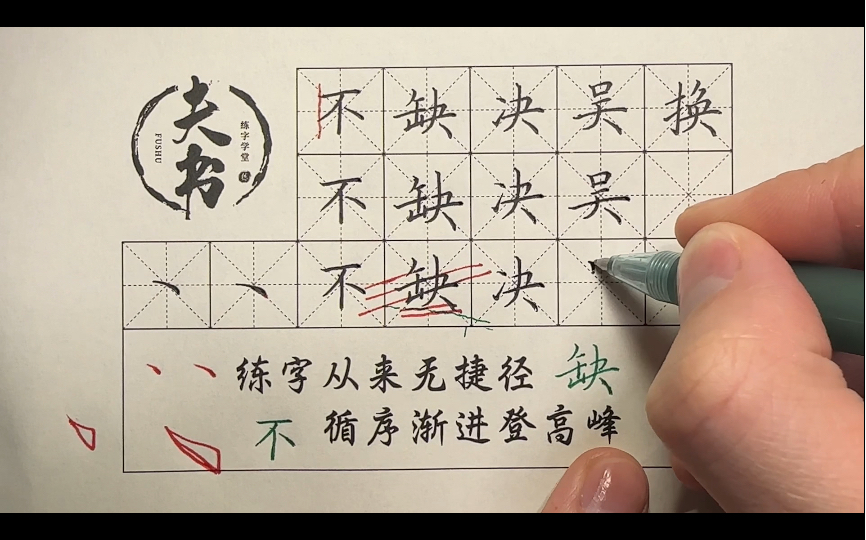 夫书
练字学堂
FUSHU
不缺决吴换
不缺决吴
不缺决
练字从来无捷径 缺
不 循序渐进登高峰